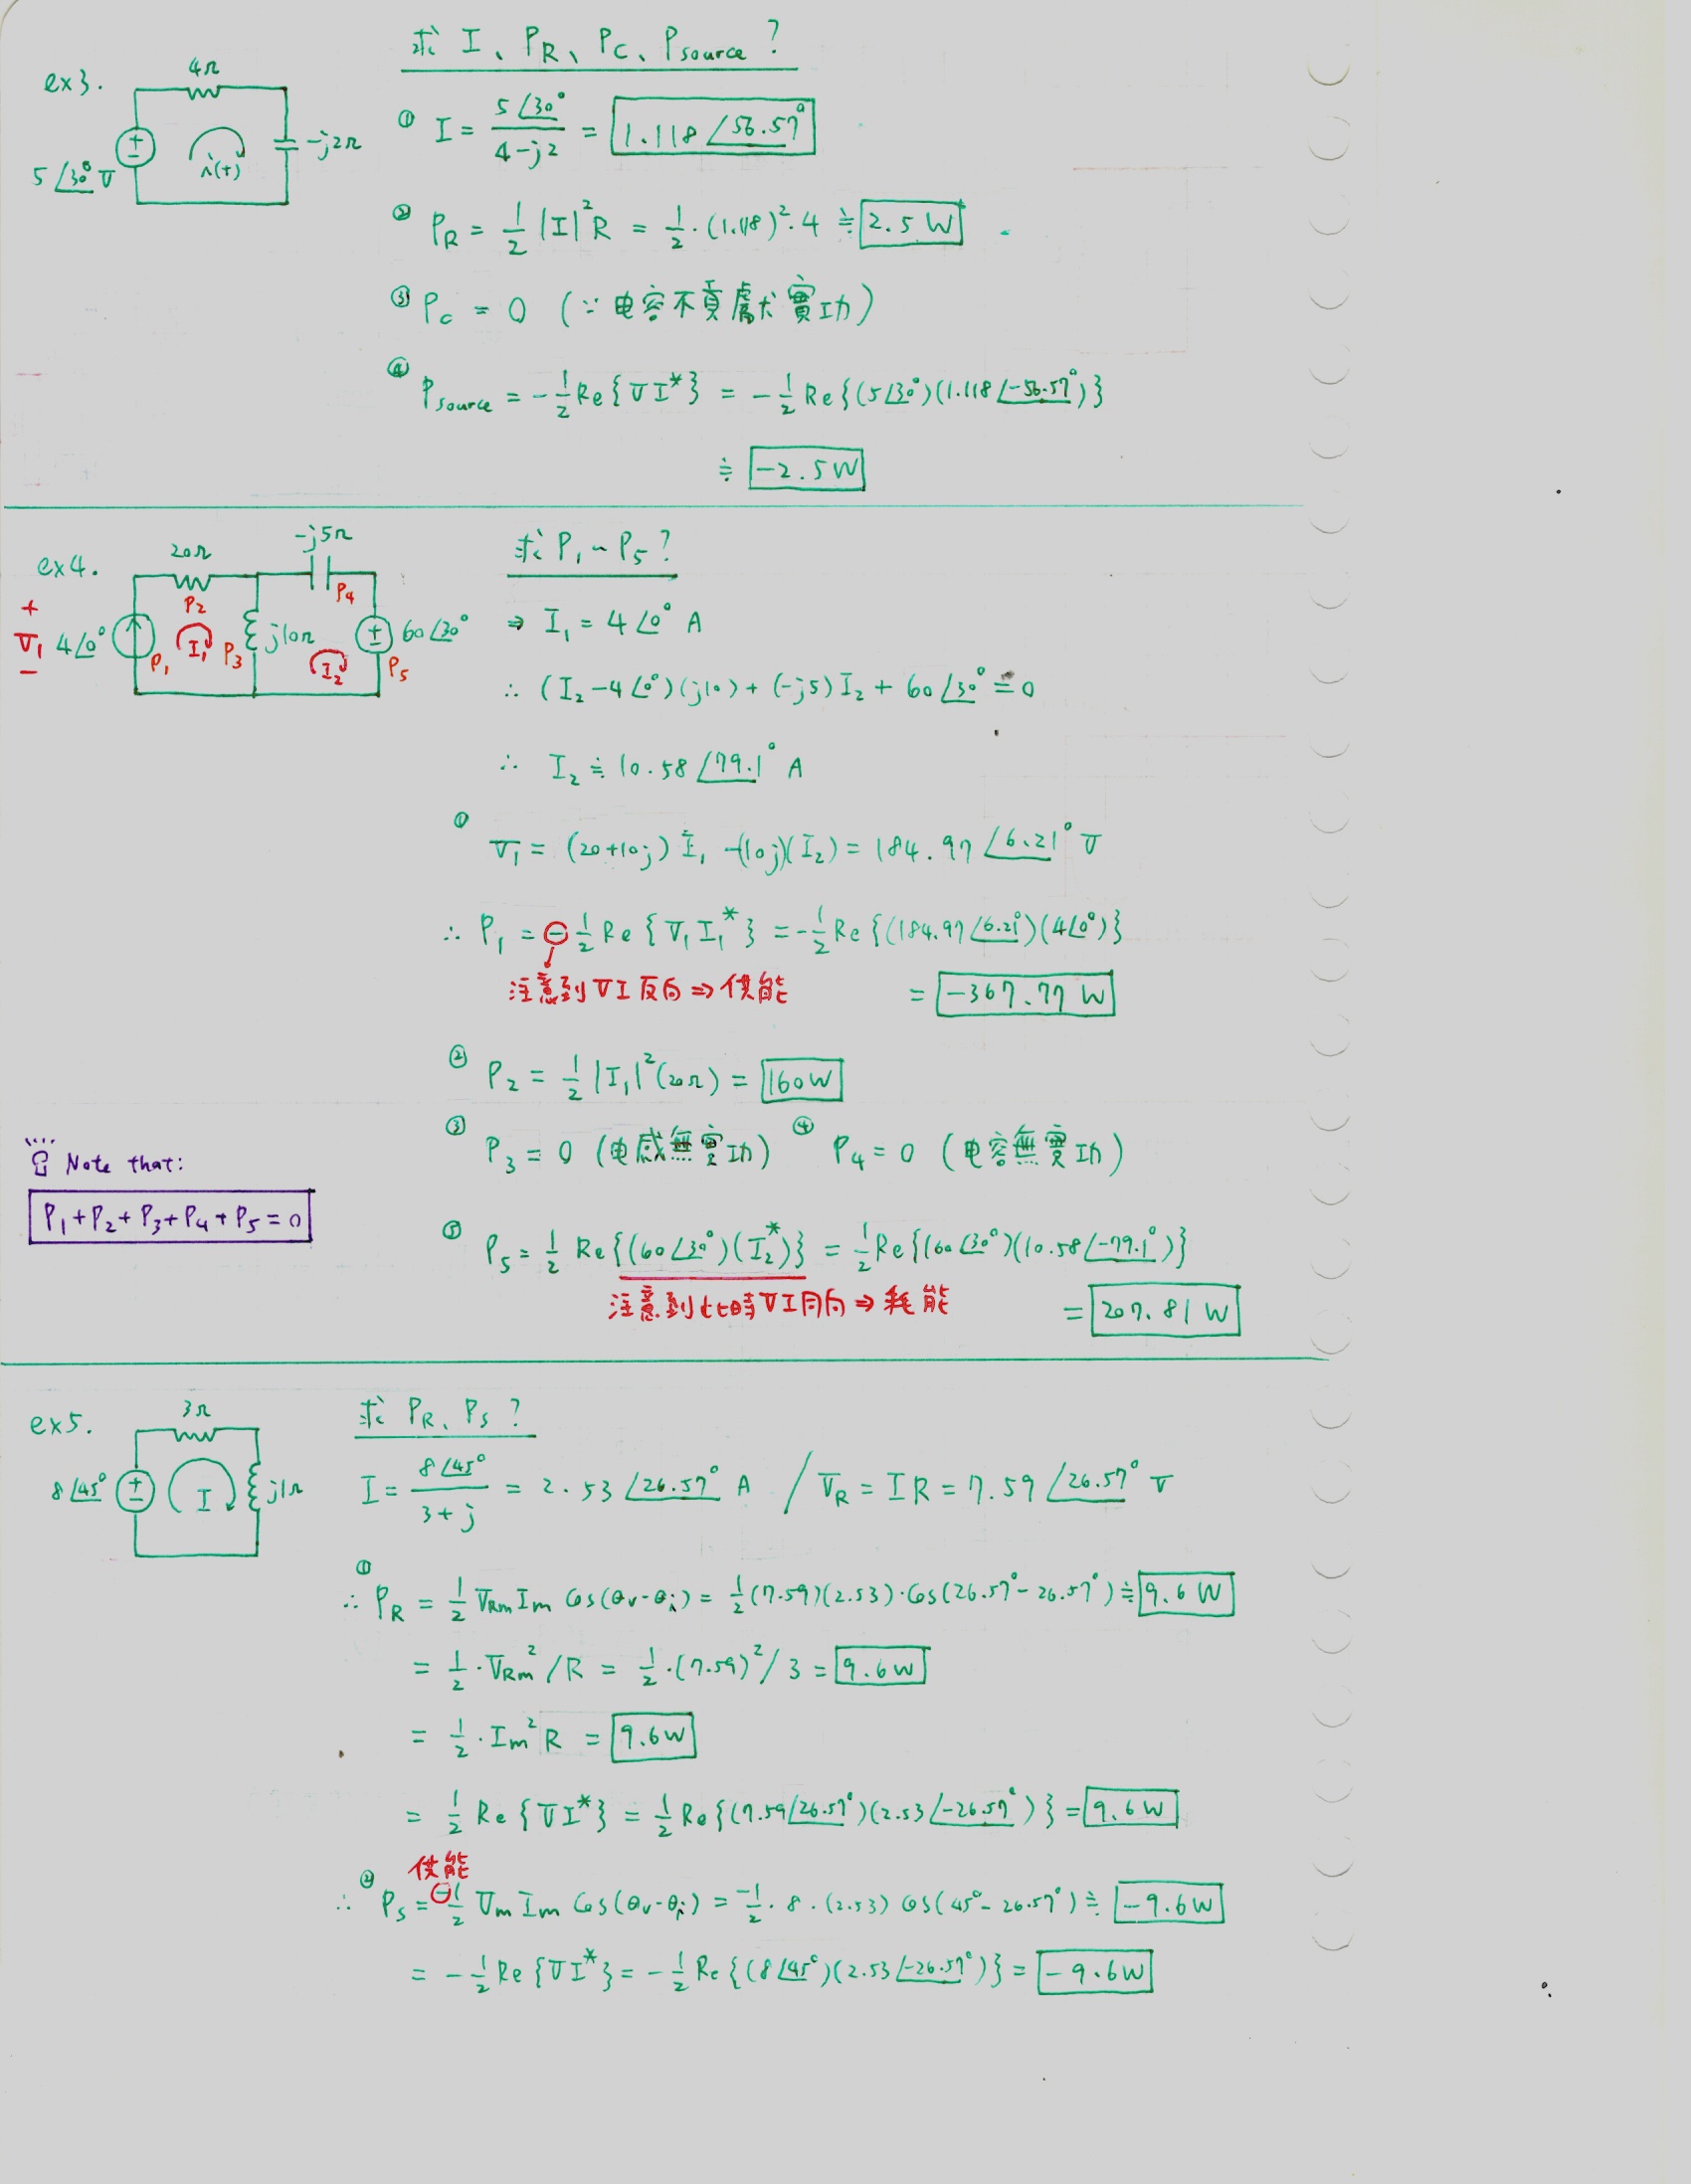 ex3.
4Ω
-j2Ω
5∠30° V
i(t)
求 I、P_R、P_C、P_source ?
① I = 5∠30° / (4-j2) = 1.118∠56.57°
② P_R = 1/2 |I|² R = 1/2 · (1.118)² · 4 ≒ 2.5 W
③ P_C = 0 (∵ 电容不貢獻實功)
④ P_source = -1/2 Re{V I*} = -1/2 Re{(5∠30°)(1.118∠-56.57°)}
≒ -2.5 W
ex4.
20Ω
-j5Ω
P2
P4
+
V1
-
4∠0°
P1
I1
P3
j10Ω
I2
60∠30°
P5
求 P1 ~ P5 ?
⇒ I1 = 4∠0° A
∴ (I2 - 4∠0°)(j10) + (-j5) I2 + 60∠30° = 0
∴ I2 ≒ 10.58∠79.1° A
① V1 = (20+10j) I1 -(10j)(I2) = 184.97∠6.21° V
∴ P1 = -1/2 Re{V1 I1*} = -1/2 Re{(184.97∠6.21°)(4∠0°)}
注意到 V I 反向 ⇒ 供能
= -367.77 W
② P2 = 1/2 |I1|² (20Ω) = 160 W
③ P3 = 0 (电感無實功) ④ P4 = 0 (电容無實功)
Note that:
P1 + P2 + P3 + P4 + P5 = 0
⑤ P5 = 1/2 Re{(60∠30°)(I2*)} = 1/2 Re{(60∠30°)(10.58∠-79.1°)}
注意到此時 V I 同向 ⇒ 耗能
= 207.81 W
ex5.
3Ω
8∠45°
I
j1Ω
求 P_R、P_S ?
I = 8∠45° / (3+j) = 2.53∠26.57° A / V_R = I R = 7.59∠26.57° V
① ∴ P_R = 1/2 V_Rm I_m cos(θv-θi) = 1/2 (7.59)(2.53)·cos(26.57°-26.57°) ≒ 9.6 W
= 1/2 · V_Rm² / R = 1/2 · (7.59)² / 3 = 9.6 W
= 1/2 · I_m² R = 9.6 W
= 1/2 Re{V I*} = 1/2 Re{(7.59∠26.57°)(2.53∠-26.57°)} = 9.6 W
供能
② ∴ P_S = -1/2 V_m I_m cos(θv-θi) = -1/2 · 8 · (2.53) cos(45°-26.57°) ≒ -9.6 W
= -1/2 Re{V I*} = -1/2 Re{(8∠45°)(2.53∠-26.57°)} = -9.6 W